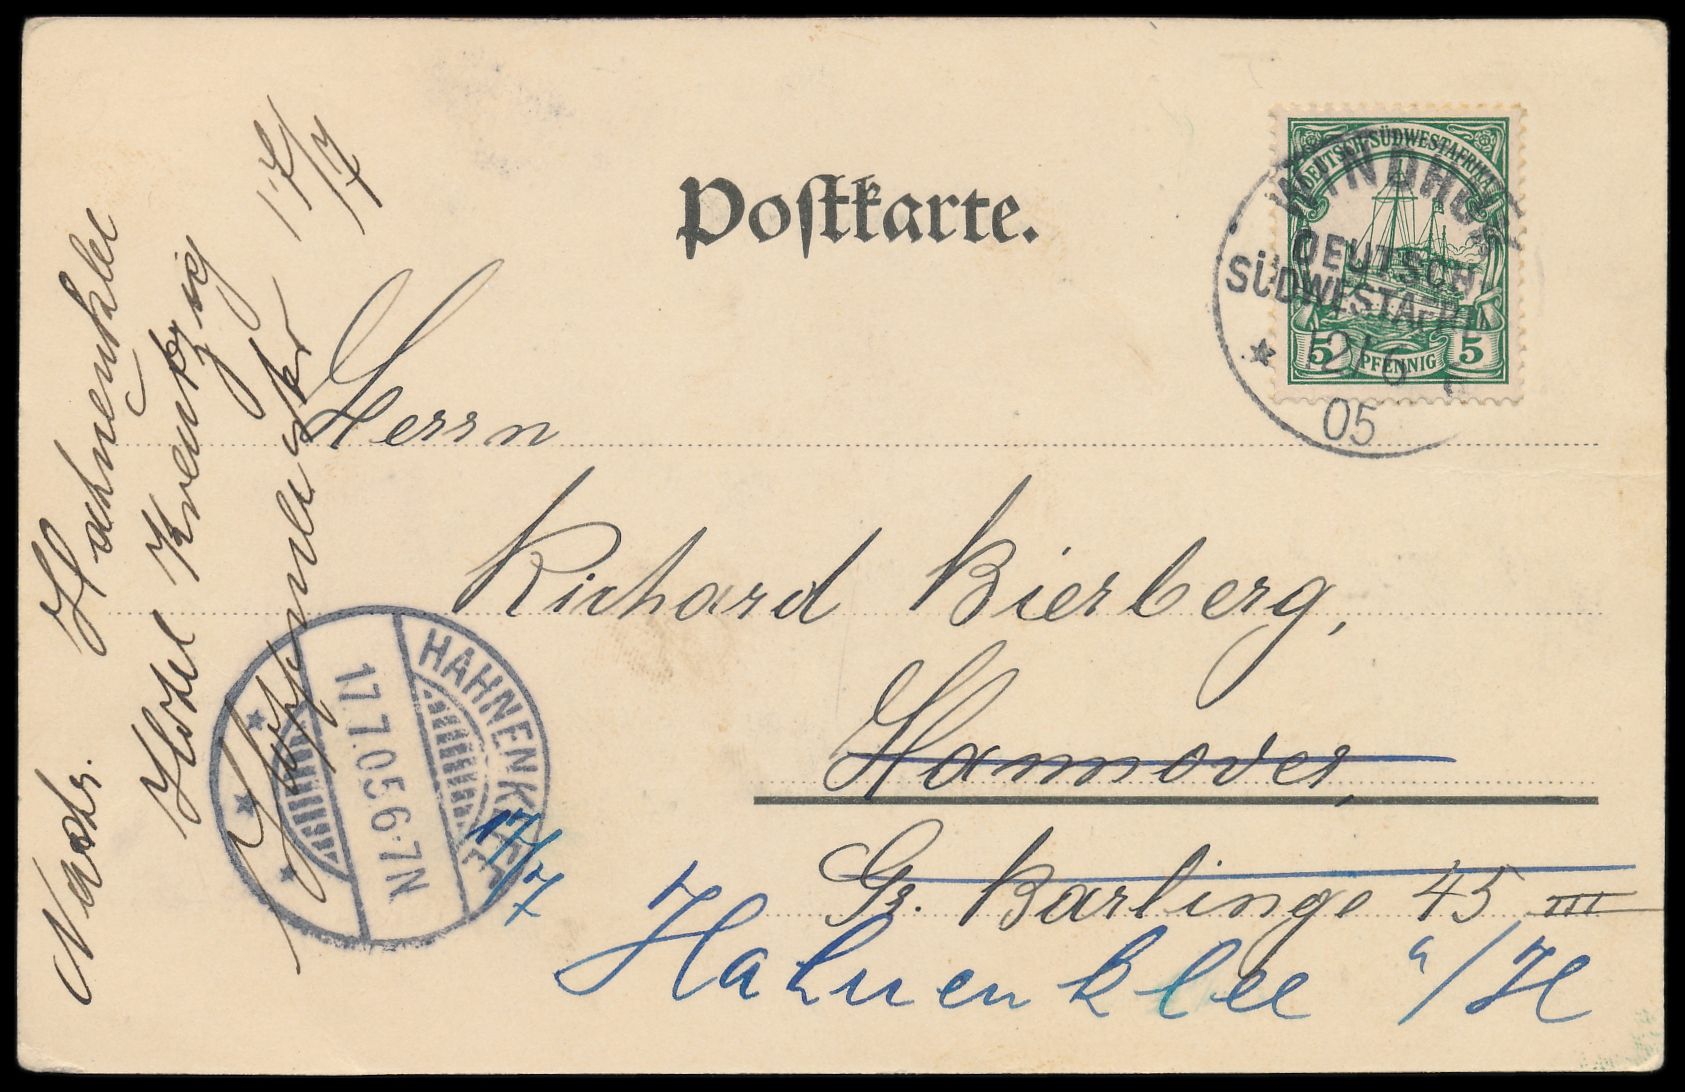 Postkarte.
DEUTSCH-SÜDWESTAFRIKA
5 PFENNIG 5
WINDHUK
DEUTSCH-
SÜDWESTAFRIKA
12/6
05
Herrn
Richard Bierberg,
Hannover,
Gr. Barlinge 45 III
17/7
Hahnenklee i/H
HAHNENKLEE
17.7.05.6-7N
Hahnenklee
Hotel
17/7